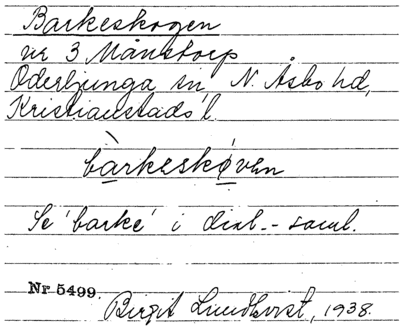 Barkeskogen
ur 3 Månstorp
Oderljunga sn, N. Åsbo hd,
Kristianstads l.
bàrkeskǿven
Se 'barke' i dial.-saml.
Nr 5499.
Birgit Lundkvist, 1938.